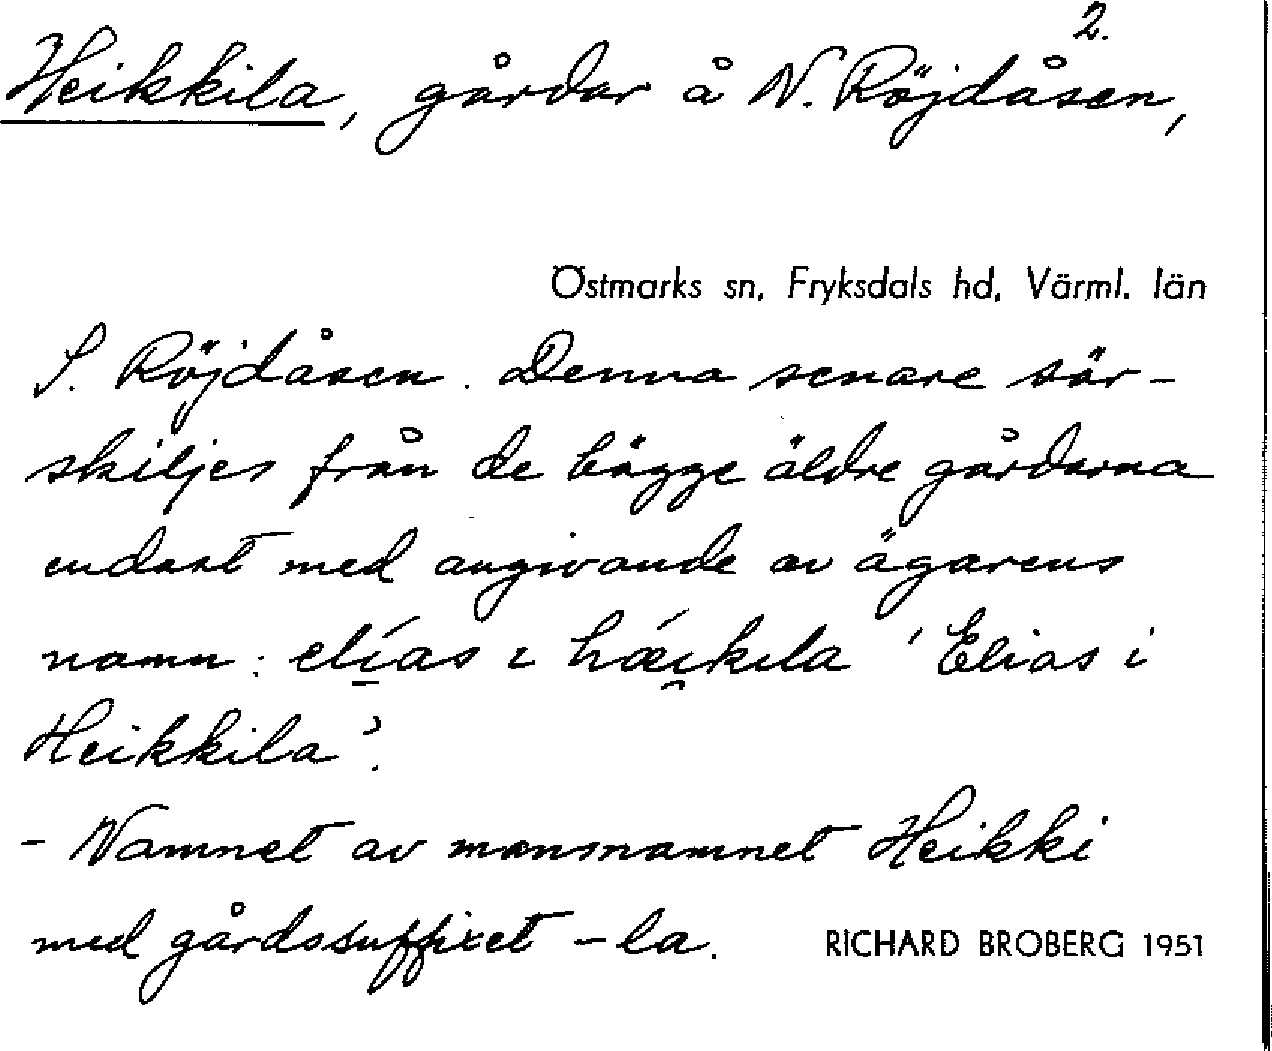 2.
Heikkila, gårdar å N. Röjdåsen,
Östmarks sn, Fryksdals hd, Värml. län
S. Röjdåsen. Denna senare sär-
skiljes från de bägge äldre gårdarna
endast med angivande av ägarens
namn: elías ɪ hǽɪ̯kɪla 'Elias i
Heikkila'.
- Namnet av mansnamnet Heikki
med gårdssuffixet -la.
RICHARD BROBERG 1951